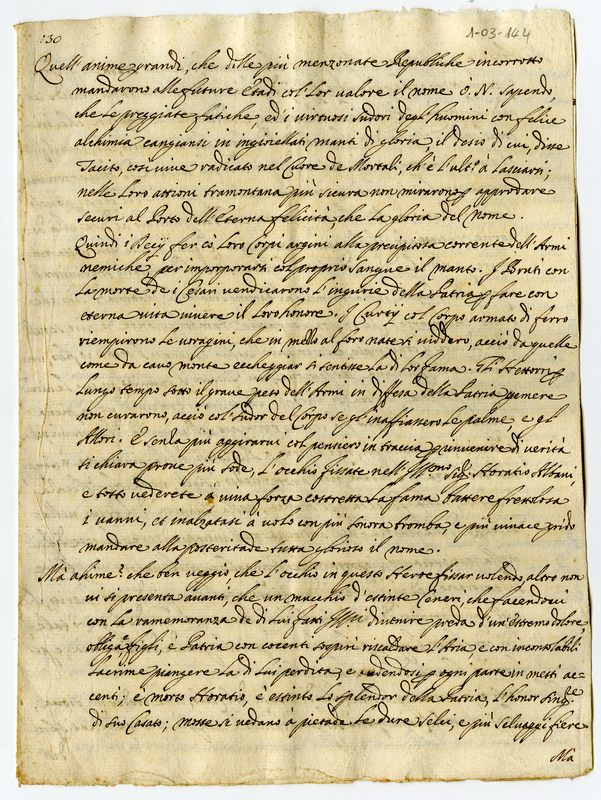 130
1-03-144
Quell' anime grandi, che dalle più menzonate Republiche incorrotto
mandarono alle future Etadi col' Lor valore il nome O. N. Sapendo,
che Le preggiate fatiche, ed i virtuosi sudori degl' huomini con felice
alchimia cangiansi in ingioiellati manti di gloria, il desio di cui, disse
Tacito, così vive radicato nel Cuore de Mortali, ch'è l'ult.o à Lasciarsi;
nelle Loro attioni tramontana più sicura non mirarono p approdare
securi al Porto dell' Eterna felicità, che La gloria del Nome.
Quindi i Decij fer cò Loro Corpi argini alla precipitosa corrente dell' Armi
nemiche per imporporarsi col proprio sangue il manto. I Bruti con
La morte de i Cesari vendicarono L'ingiurie della Patria p fare con
eterna vita vivere il Loro honore. I Curtij col Corpo armato di ferro
riempirono Le voragini, che in mezzo al foro nate si viddero, acciò da quelle
come da cavo monte eccheggiar si sentisse La di Lor fama. Gli Hettorri p
Lungo tempo sotto il grave peso dell' Armi in diffesa della Patria gemere
non curarono, acciò col' sudor del Corpo se gl' inaffiassero Le palme, e gl'
Allori. E senza più aggirarvi col pensiero in traccia p rinvenire di verità
sì chiara prove più sode, L'occhio fissate nell' Ill.mo Sig.r Horatio Albani,
e tosto vederete à viva forza costretta La fama battere frettolosa
i vanni, et inalzatasi à volo con più sonora tromba, e più vivace grido
mandare alla posteritade tutta glorioso il nome.
Mà ahime! che ben veggio, che L'occhio in questo Heroe fissar volendo, altro non
vi si presenta avanti, che un mucchio d'estinte Ceneri, che facendoci
con La ramemoranza de di Lui fatti Ill.ri divenire preda d'un estremo dolore
obliga figli, e Patria con cocenti sospiri riscaldare L'Aria, e con inconsolabili
Lacrime piangere La di Lui perdita, e udendosi p ogni parte in mesti ac-
centi; è morto Horatio, è estinto Lo splendor della Patria, L'honor sing.re
di suo Casato; mosse si vedano à pietade Le dure selci, e più selvaggi fiere.
Mà